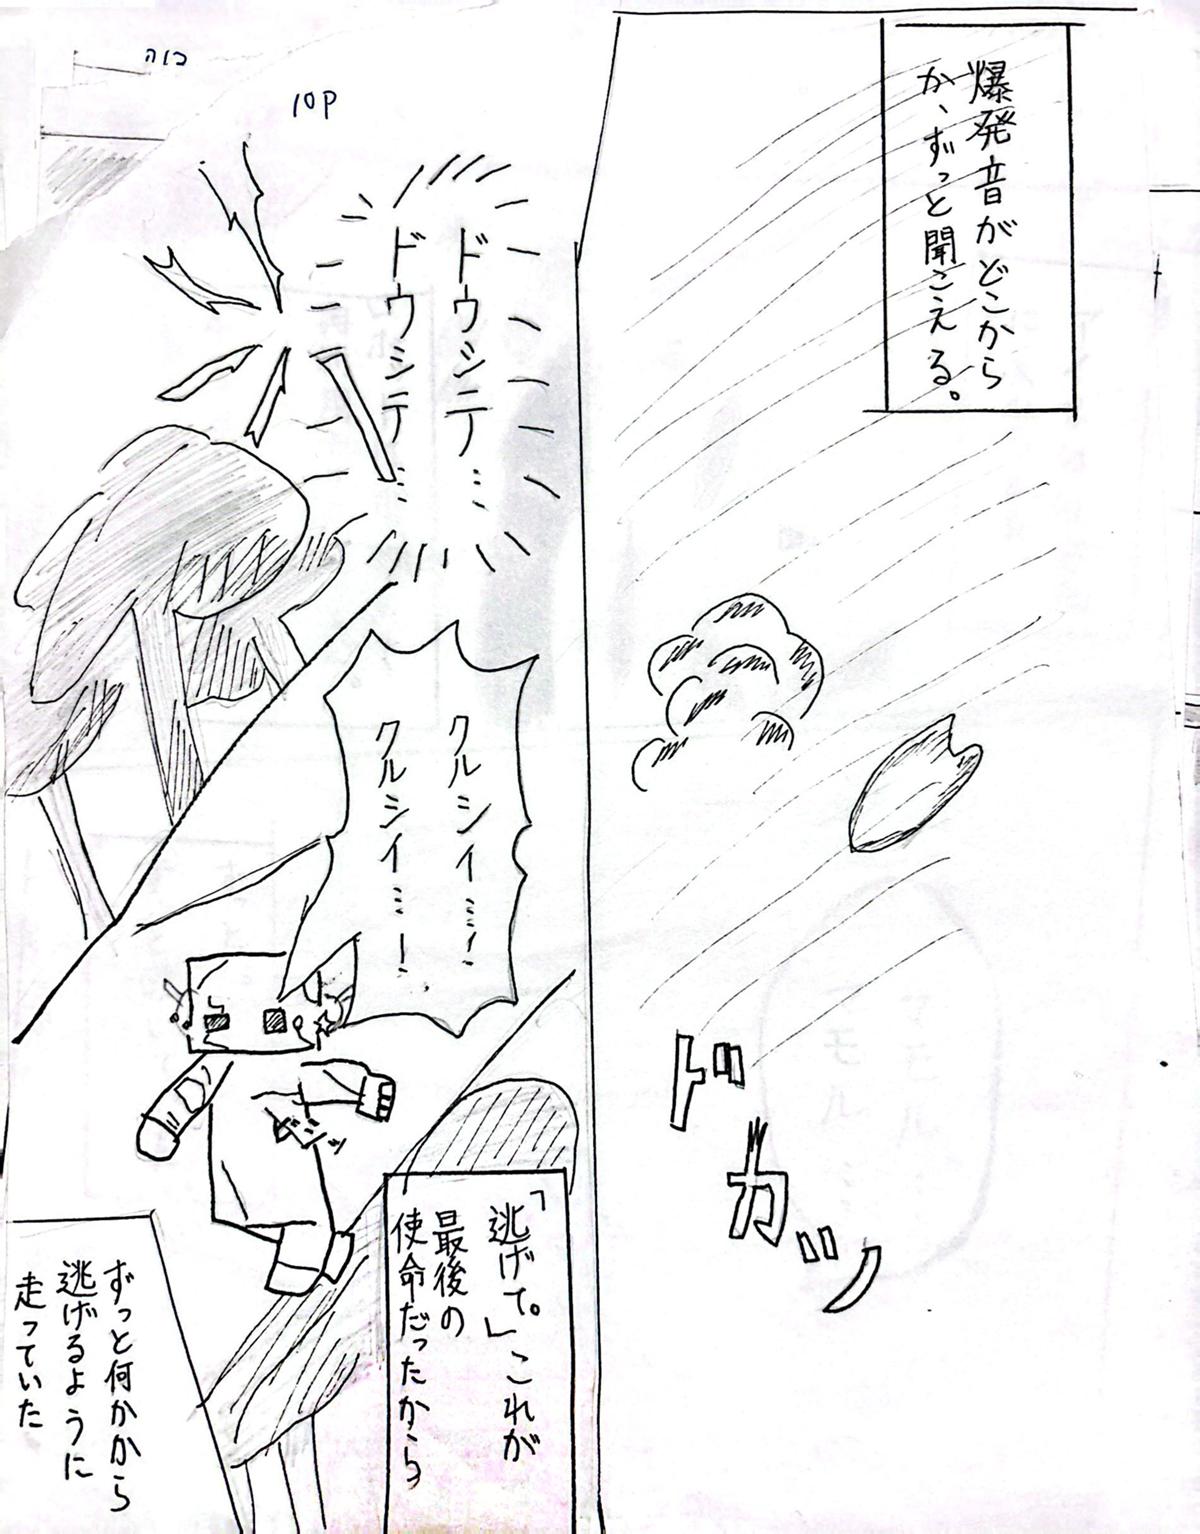 爆発音がどこから
か、ずっと聞こえる。
ドカッ
10P
ドウシテ…
ドウシテ…
クルシイ…!
クルシイ…!
「逃げて。」これが
最後の
使命だったから
ずっと何かから
逃げるように
走っていた